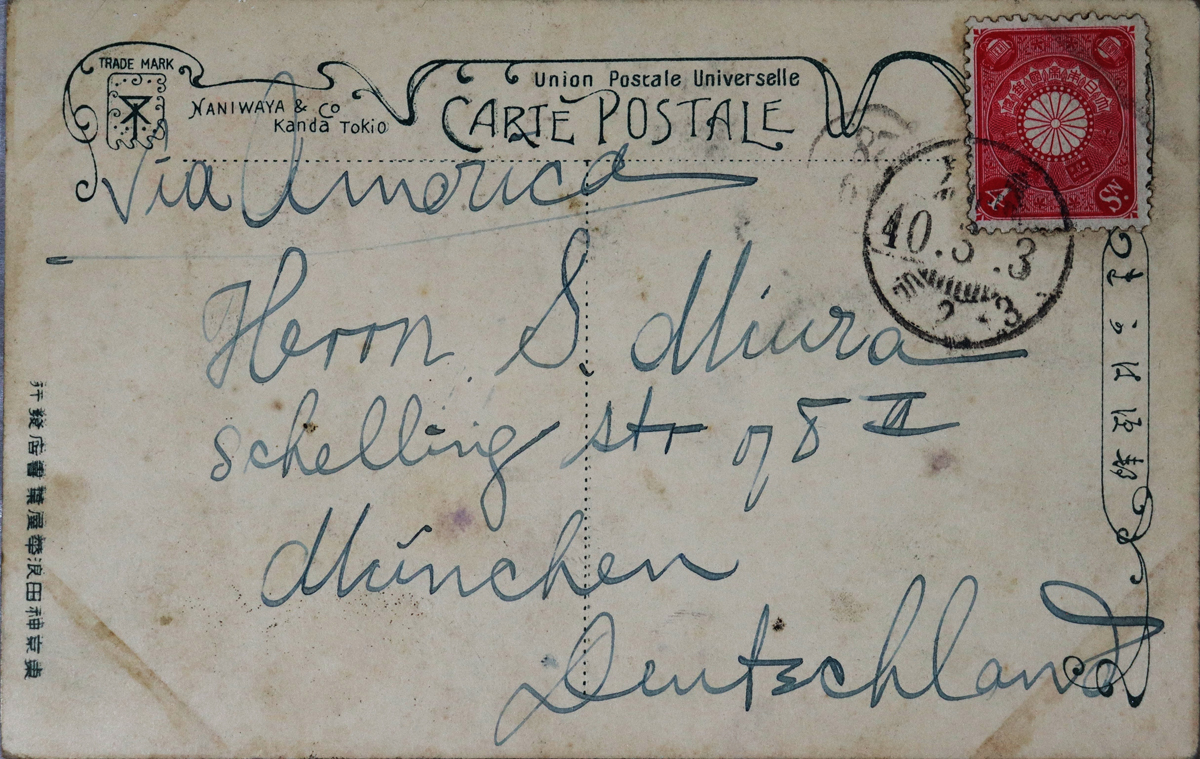 TRADE MARK
NANIWAYA & Co
Kanda Tokio
Union Postale Universelle
CARTE POSTALE
Via America
Herrn S. Miura
Schelling str 78 II
München
Deutschland
東京神田浪華屋葉書店發行
4 Sn.
10.3.3